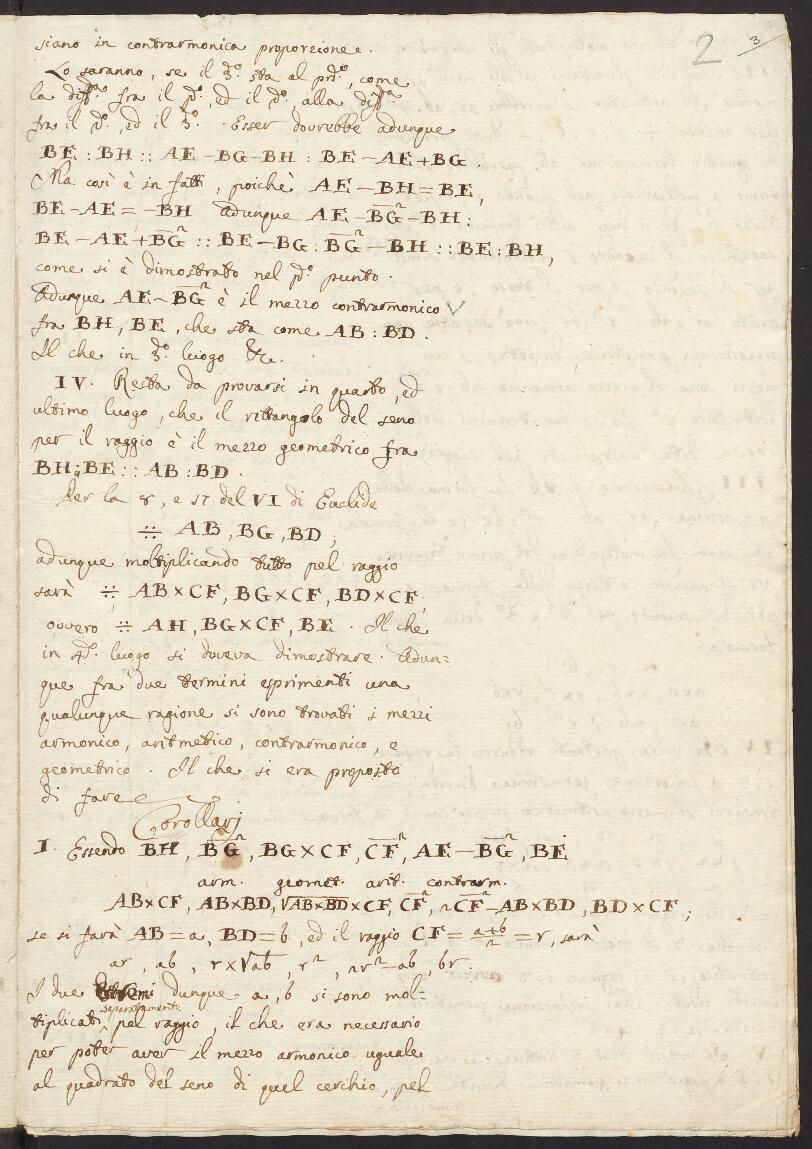 2 3
siano in contrarmonica proporzione.
Lo saranno, se il 3.º sta al pº., come
la diffª. fra il pº., ed il 2º. alla diffª.
fra il 2º., ed il 3º. Esser dovrebbe adunque
BE : BH :: AE − BG − BH : BE − AE + BG.
Ma così è in fatti, poichè AE − BH = BE,
BE − AE = − BH adunque AE − BG² − BH :
BE − AE + BG² :: BE − BG : BG² − BH :: BE : BH,
come si è dimostrato nel pº. punto.
Adunque AE − BG² è il mezzo contrarmonico
fra BH, BE, che sta come AB : BD.
Il che in 3º. luogo &c.
IV. Resta da provarsi in quarto, ed
ultimo luogo, che il rettangolo del seno
per il raggio è il mezzo geometrico fra
BH : BE :: AB : BD.
Per la 8, e 17 del VI di Euclide
∺ AB, BG, BD;
adunque moltiplicando tutto pel raggio
sarà ∺ AB × CF, BG × CF, BD × CF,
ovvero ∺ AH, BG × CF, BE. Il che
in 4º. luogo si doveva dimostrare. Adun=
que fra due termini esprimenti una
qualunque ragione si sono trovati i mezzi
armonico, aritmetico, contrarmonico, e
geometrico. Il che si era proposto
di fare
Corollarj
I. Essendo BH, BG², BG × CF, CF², AE − BG², BE
arm. geomet. arit. contrarm.
AB × CF, AB × BD, √AB × BD × CF, CF², 2CF² − AB × BD, BD × CF;
se si farà AB = a, BD = b, ed il raggio CF = a+b/2 = r, sarà
ar, ab, r × √ab, r², 2r² − ab, br.
I due estremi dunque a, b si sono mol=
separatamente
tiplicati pel raggio, il che era necessario
per poter aver il mezzo armonico uguale
al quadrato del seno di quel cerchio, pel